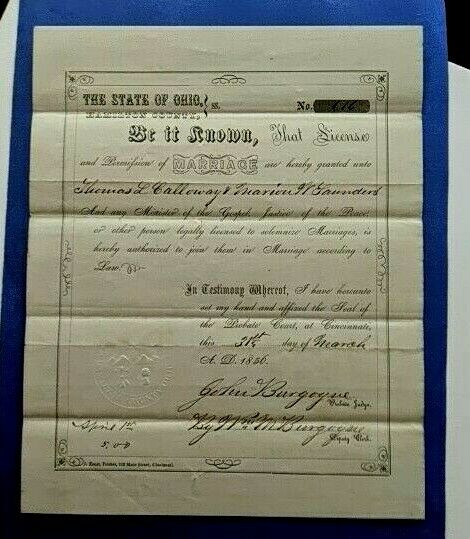 THE STATE OF OHIO, } ss. No. 676
HAMILTON COUNTY,
Be it Known, That License
and Permission of MARRIAGE are hereby granted unto
Thomas L Calloway & Marion W Saunders
And any Minister of the Gospel, Justice of the Peace,
or other person legally licensed to solemnize Marriages, is
hereby authorized to join them in Marriage according to
Law.
In Testimony Whereof, I have hereunto
set my hand and affixed the Seal of
the Probate Court, at Cincinnati,
this 31st day of March
A. D. 1856.
John Burgoyne
Probate Judge.
By Wm M Burgoyne
Deputy Clerk.
April 1st
Printer, 112 Main Street, Cincinnati.